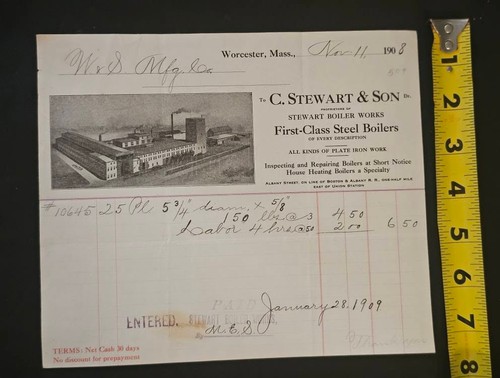 Worcester, Mass., Nov 11 1908
W & S Mfg. Co.
To C. STEWART & SON Dr.
PROPRIETORS OF
STEWART BOILER WORKS
First-Class Steel Boilers
OF EVERY DESCRIPTION
ALL KINDS OF PLATE IRON WORK
Inspecting and Repairing Boilers at Short Notice
House Heating Boilers a Specialty
ALBANY STREET, ON LINE OF BOSTON & ALBANY R. R., ONE-HALF MILE
EAST OF UNION STATION
#10645 25 Pl 5 3/4" diam, x 5/8"
150 lbs @ 3 4 50
Labor 4 hrs @ 50 2 00 6 50
PAID
January 28, 1909
ENTERED. STEWART BOILER WORKS,
M.E.S.
TERMS: Net Cash 30 days
No discount for prepayment
1
2
3
4
5
6
7
8